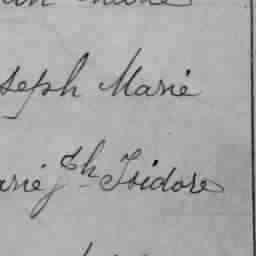 seph Marie
arie Jh Isidore